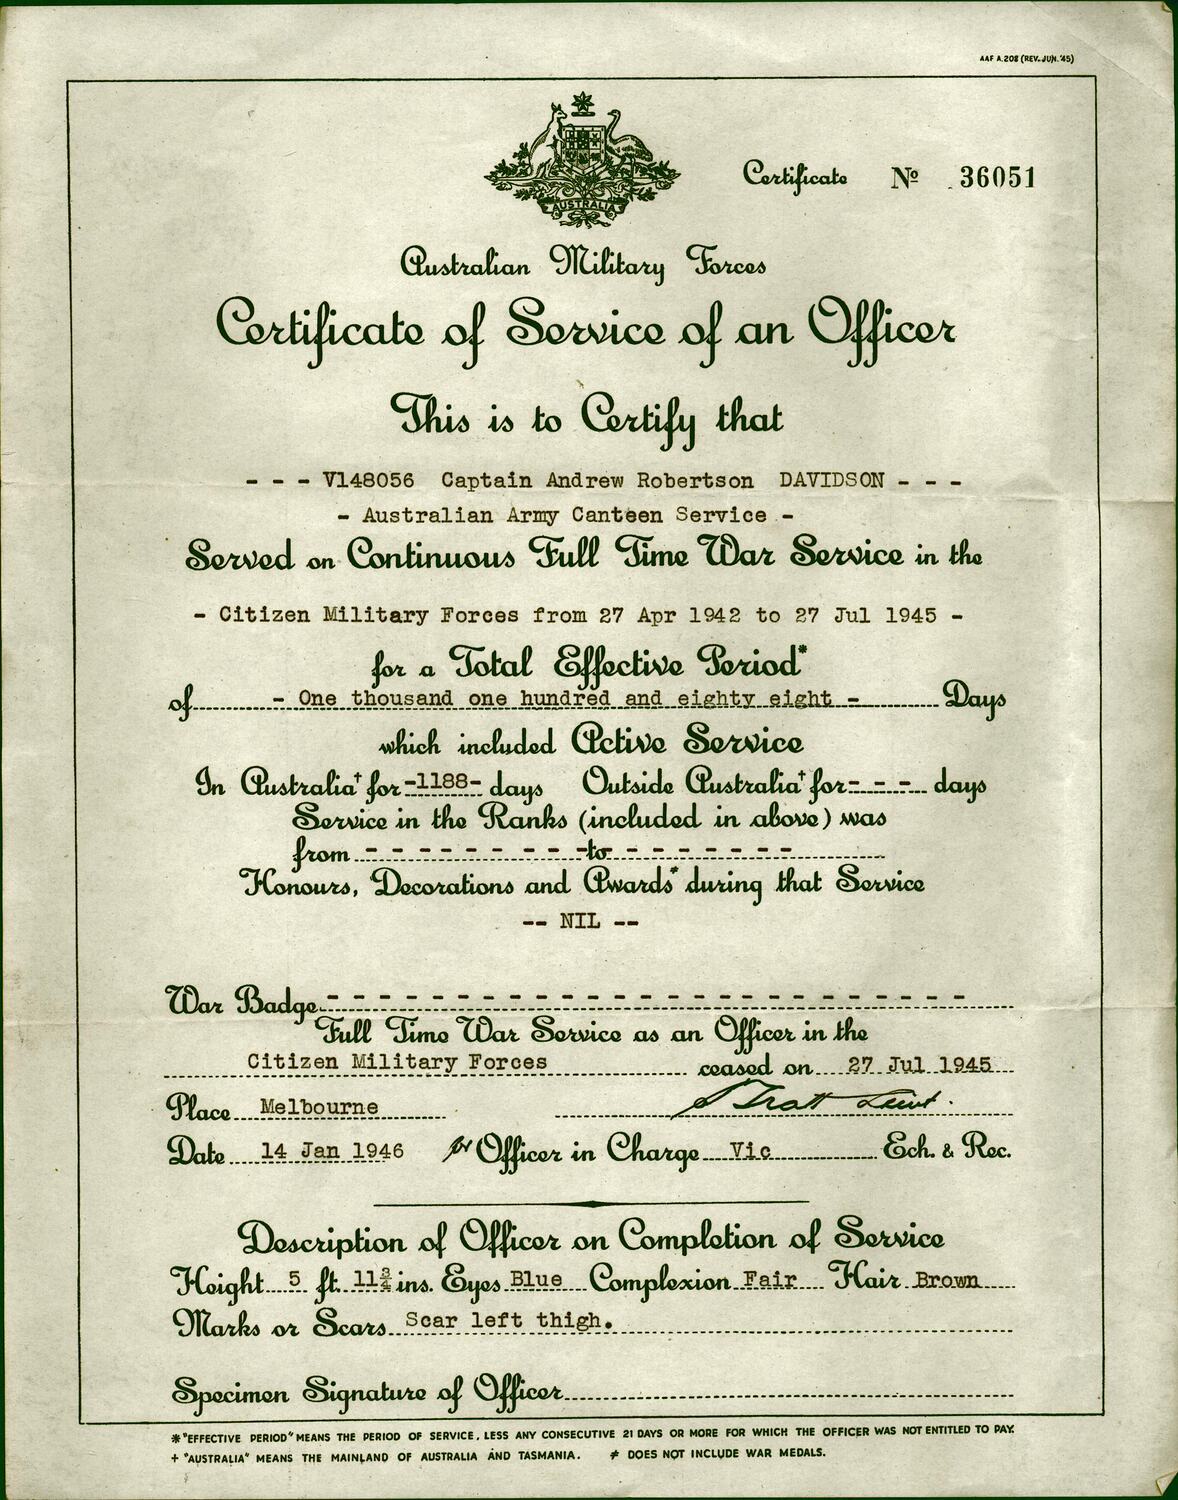 AAF A.208 (REV. JUN. '45)
AUSTRALIA
Certificate No 36051
Australian Military Forces
Certificate of Service of an Officer
This is to Certify that
- - - V148056 Captain Andrew Robertson DAVIDSON - - -
- Australian Army Canteen Service -
Served on Continuous Full Time War Service in the
- Citizen Military Forces from 27 Apr 1942 to 27 Jul 1945 -
for a Total Effective Period*
of - One thousand one hundred and eighty eight - Days
which included Active Service
In Australia† for -1188- days Outside Australia† for - - - days
Service in the Ranks (included in above) was
from - - - - - - - - - to - - - - - - - -
Honours, Decorations and Awards* during that Service
-- NIL --
War Badge - - - - - - - - - - - - - - - - - - - - - - - - -
Full Time War Service as an Officer in the
Citizen Military Forces ceased on 27 Jul 1945
Place Melbourne
Date 14 Jan 1946 for Officer in Charge Vic Ech. & Rec.
Description of Officer on Completion of Service
Height 5 ft. 11¾ ins. Eyes Blue Complexion Fair Hair Brown
Marks or Scars Scar left thigh.
Specimen Signature of Officer
* "EFFECTIVE PERIOD" MEANS THE PERIOD OF SERVICE, LESS ANY CONSECUTIVE 21 DAYS OR MORE FOR WHICH THE OFFICER WAS NOT ENTITLED TO PAY.
+ "AUSTRALIA" MEANS THE MAINLAND OF AUSTRALIA AND TASMANIA. ≠ DOES NOT INCLUDE WAR MEDALS.